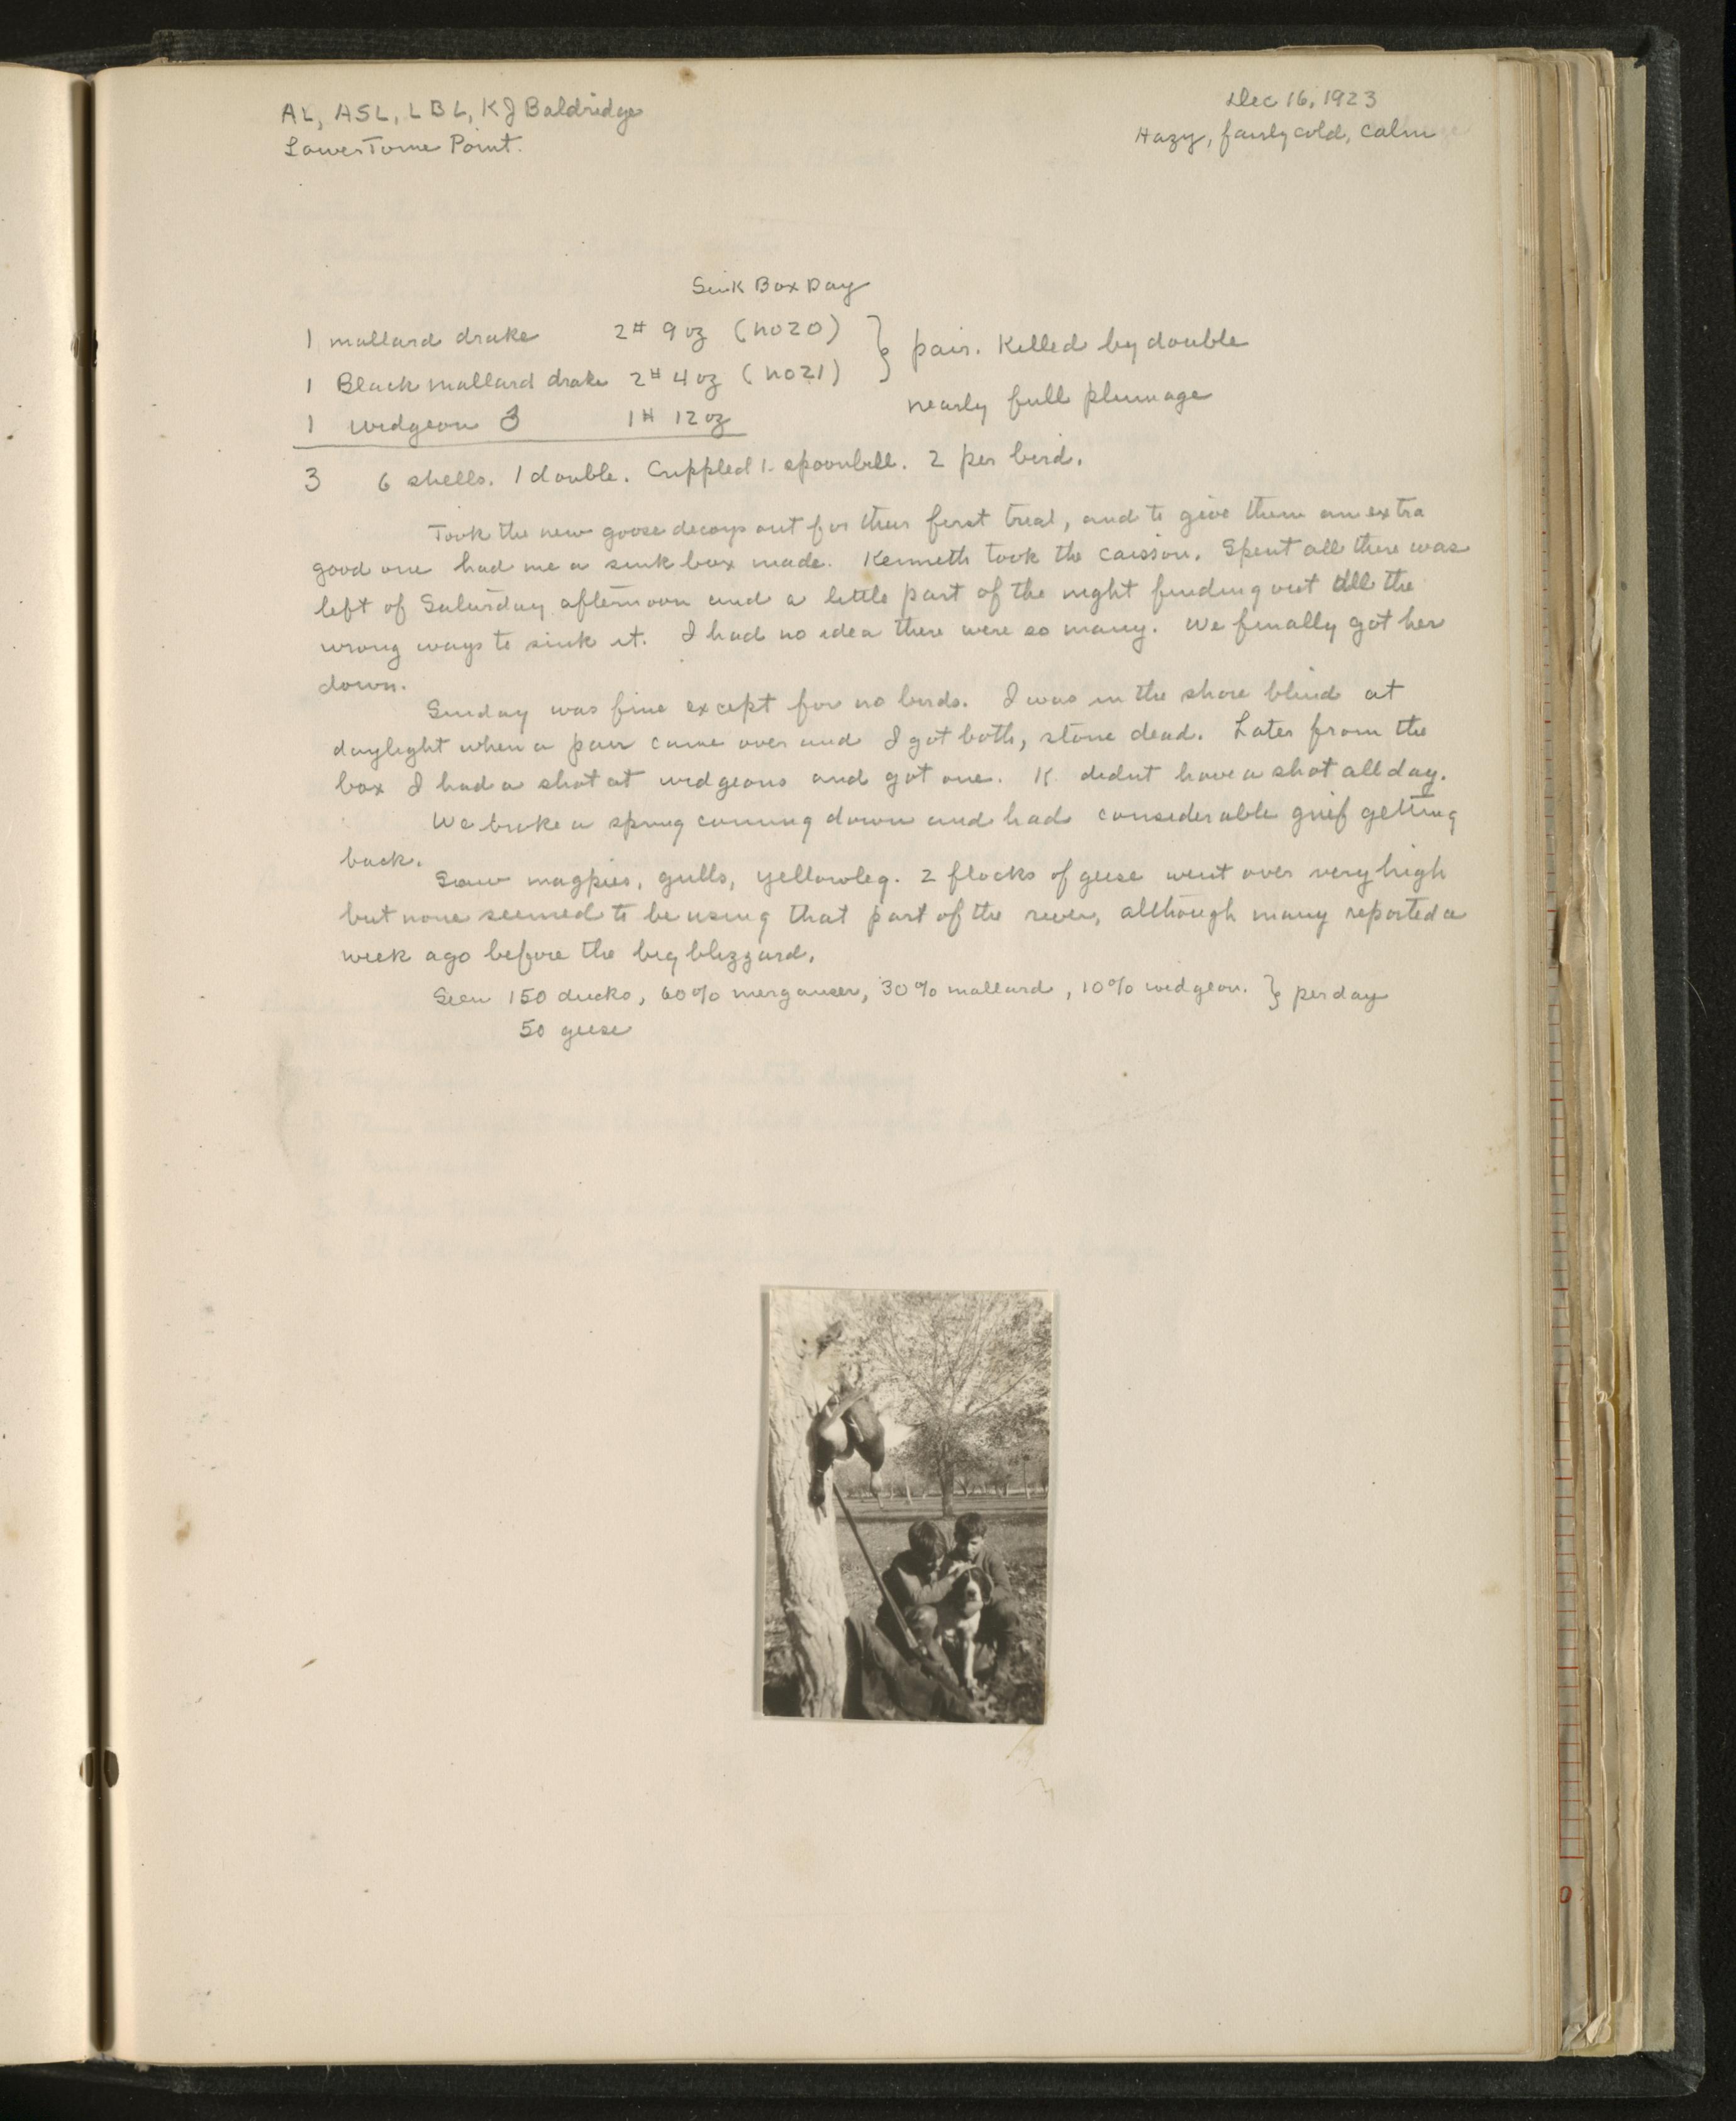 AL, ASL, LBL, KJ Baldridge
Dec 16, 1923
Lower Tome Point.
Hazy, fairly cold, calm
Sink Box Day
1 mallard drake 2# 9 oz (no 20) } pair. Killed by double
1 Black mallard drake 2# 4 oz (no 21)
nearly full plumage
1 widgeon ♂ 1# 12 oz
3 6 shells. 1 double. Crippled 1 spoonbill. 2 per bird.
Took the new goose decoys out for their first trial, and to give them an extra
good one had me a sink box made. Kenneth took the caisson. Spent all there was
left of Saturday afternoon and a little part of the night finding out all the
wrong ways to sink it. I had no idea there were so many. We finally got her
down.
Sunday was fine except for no birds. I was in the shore blind at
daylight when a pair came over and I got both, stone dead. Later from the
box I had a shot at widgeons and got one. K. didnt have a shot all day.
We broke a spring coming down and had considerable grief getting
back.
Saw magpies, gulls, yellowleg. 2 flocks of geese went over very high
but none seemed to be using that part of the river, although many reported a
week ago before the big blizzard.
Seen 150 ducks, 60% merganser, 30% mallard, 10% widgeon. } per day
50 geese